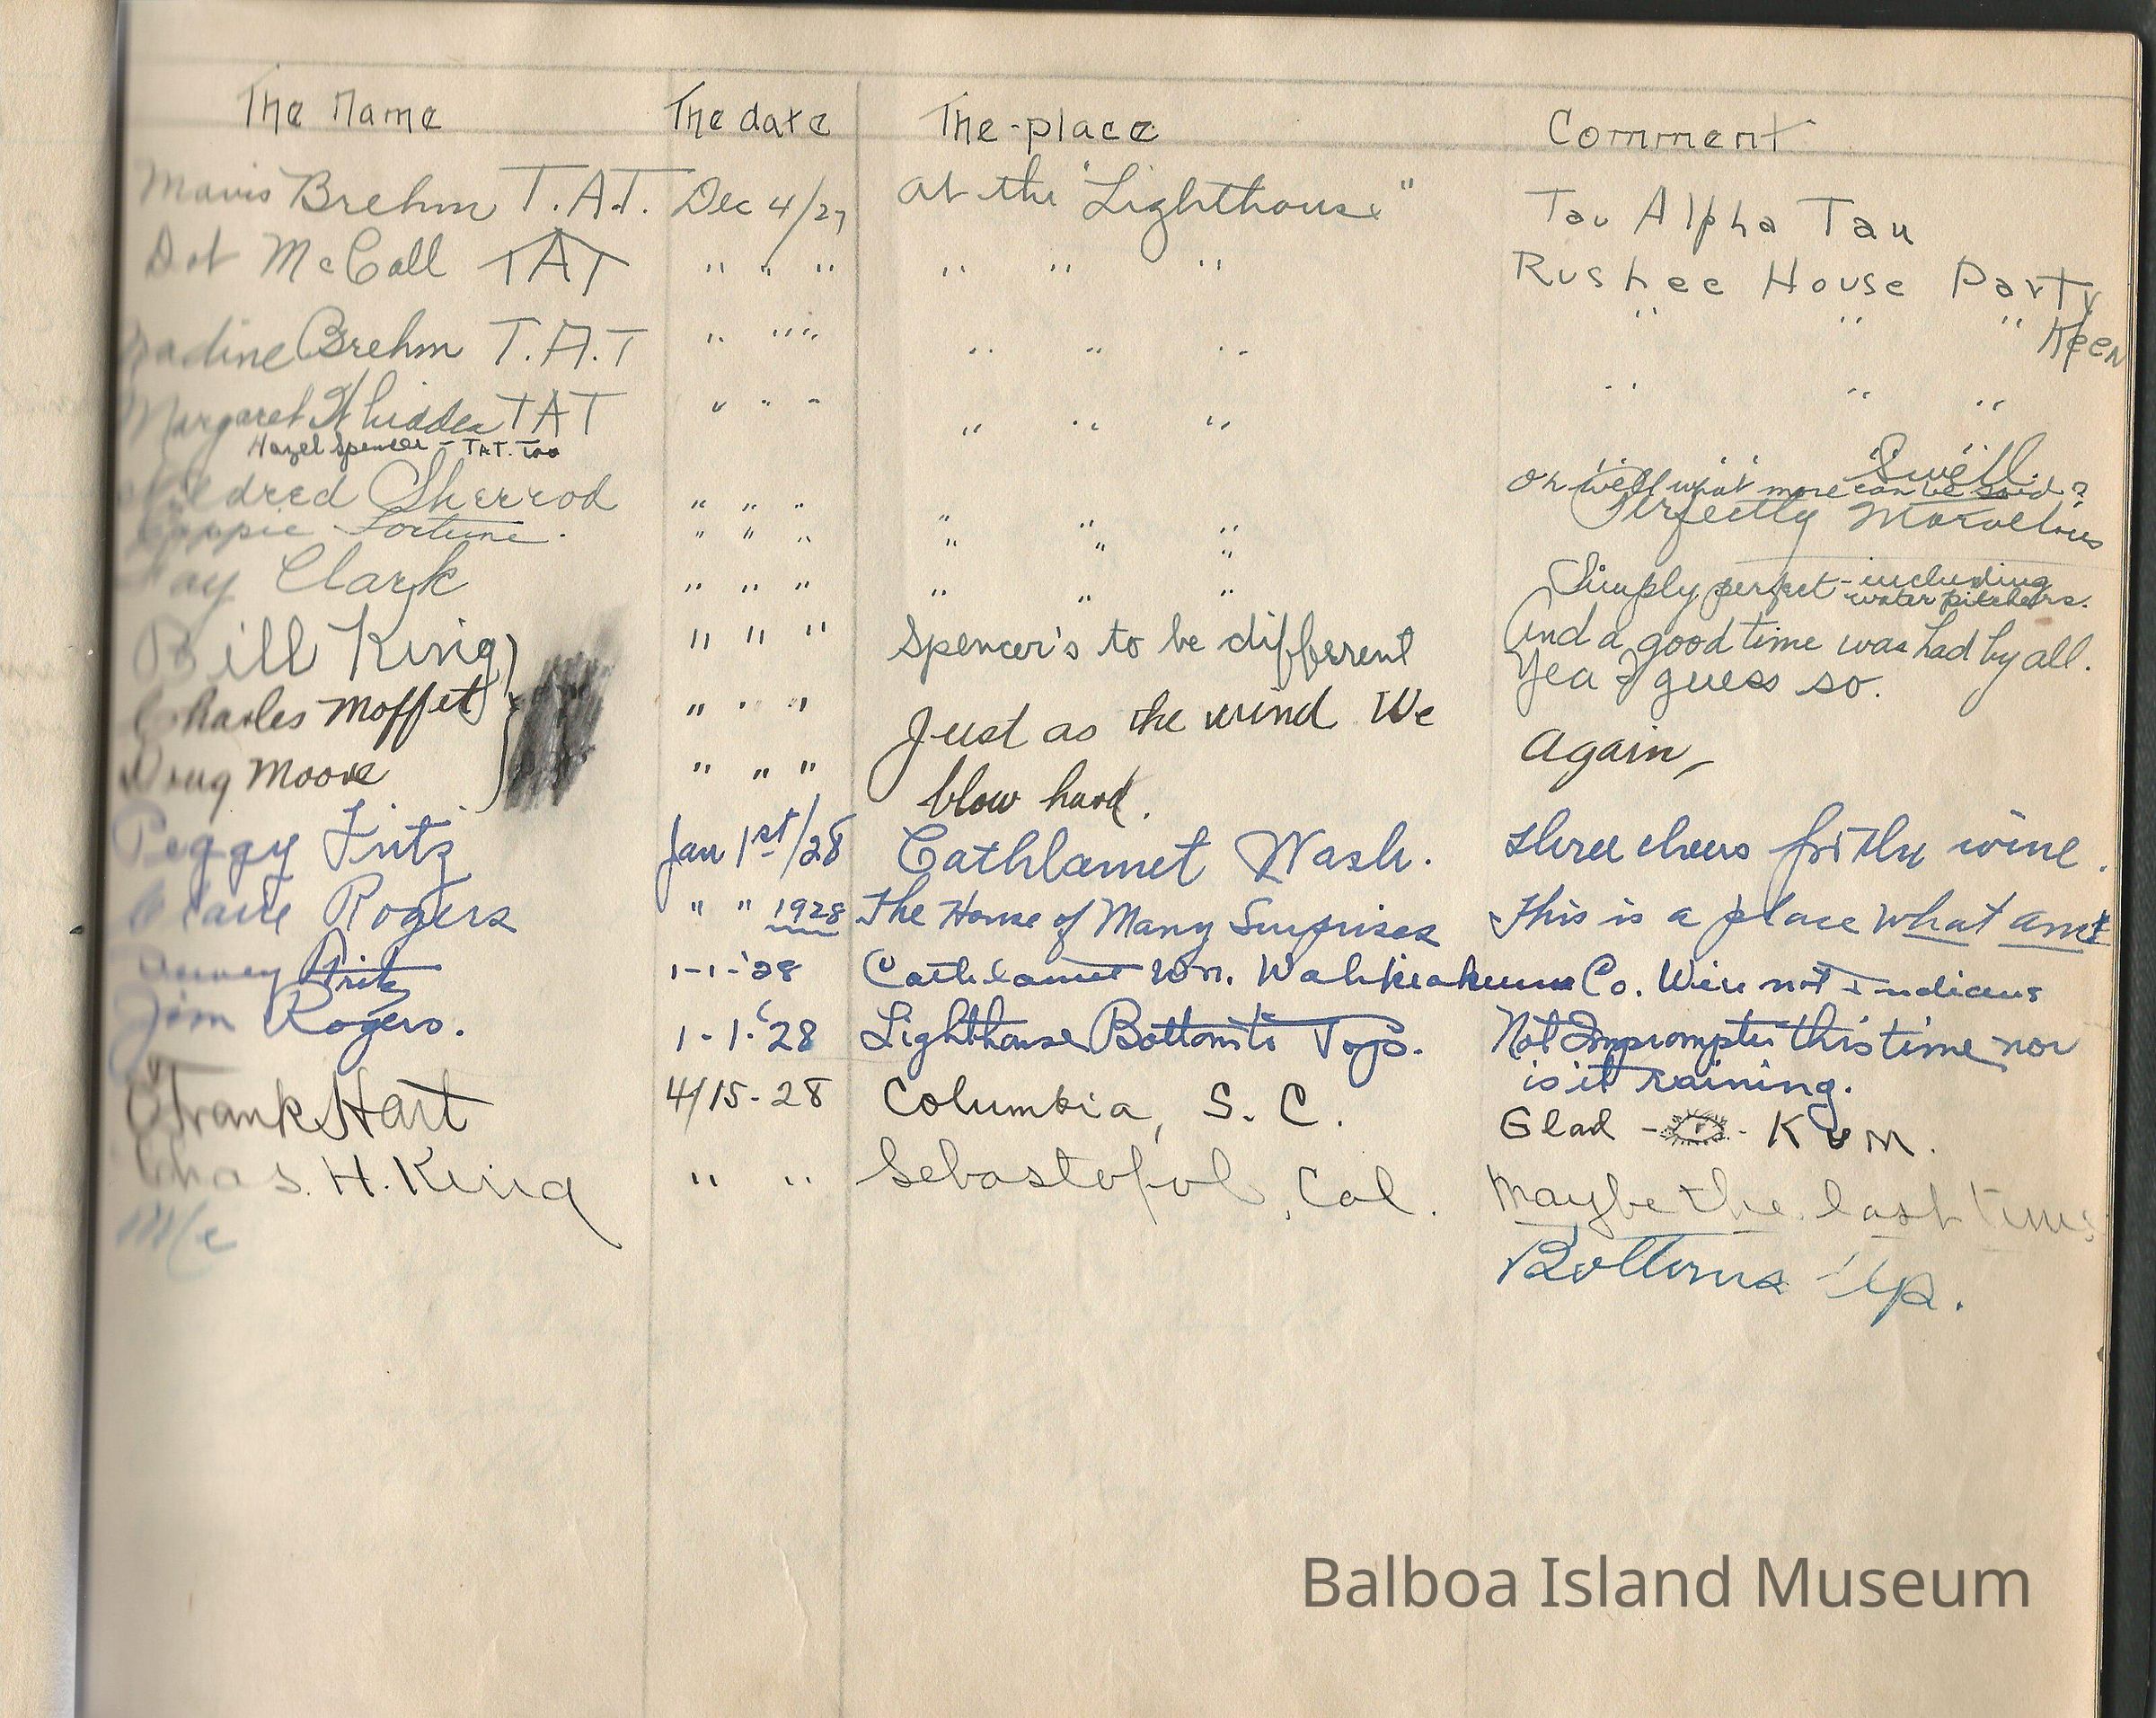 The Name The date The-place Comment
Mavis Brehm T.A.T. Dec 4/27 at the "Lighthouse" Tau Alpha Tau
Dot McCall TAT " " " " " " Rushee House Party
Nadine Brehm T.A.T " " " " " " " " " Keen
Margaret TAT " " " " " " " " "
Hazel Spencer - TAT. Too
" " " Swell
Mildred Sherrod " " " " " " Oh well what more can be said?
Fortune. " " " " " " Perfectly Marvelous
Fay Clark " " " " " " Simply perfect - including water pitchers.
Bill King " " " Spencer's to be different And a good time was had by all.
Yea I guess so.
Charles Moffet " " " Just as the wind We Again,
Doug Moore " " " blow hard.
Peggy Fritz Jan 1st/28 Cathlamet Wash. Three cheers for the wine.
Claire Rogers " " 1928 The House of Many Surprises This is a place what am't
Fritz 1-1-'28 Cathlamet Wn. Wahkiakum Co. Were not Indians
Jim Rogers. 1-1-'28 Lighthouse Bottom to Top. Not Impromptu this time nor
is it raining.
Frank Hart 4/15-28 Columbia, S. C. Glad - - Kum.
Chas. H. King " " Sebastopol, Cal. Maybe the last time
Me Bottoms Up.
Balboa Island Museum